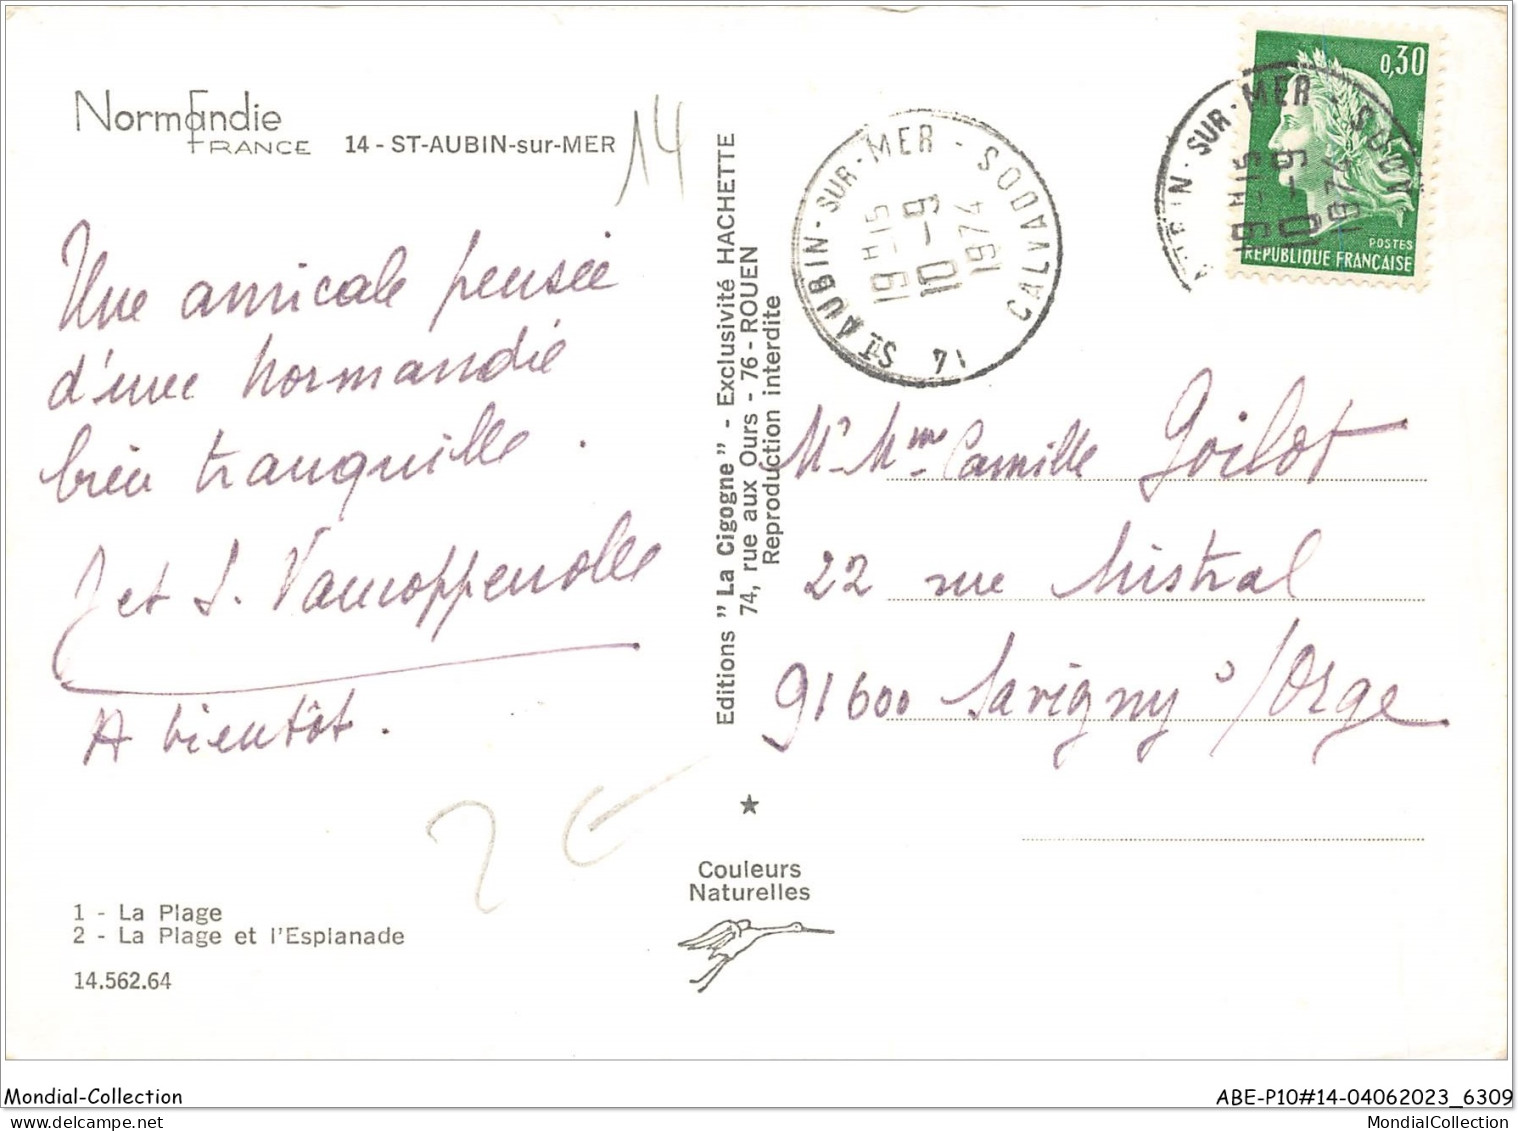 Normandie
FRANCE
14 - ST-AUBIN-sur-MER
14
Une amicale pensée
d'une Normandie
bien tranquille.
J et J. Vancoppenolle
A bientôt.
2 €
1 - La Plage
2 - La Plage et l'Esplanade
14.562.64
Editions "La Cigogne" - Exclusivité HACHETTE
74, rue aux Ours - 76 - ROUEN
Reproduction interdite
Couleurs
Naturelles
14 ST AUBIN-SUR-MER - CALVADOS
19 H 15
10 - 9
1974
AUBIN-SUR-MER
19 H 15
10 - 9
1974
0,30
POSTES
REPUBLIQUE FRANÇAISE
Mr Mme Camille Goilot
22 rue Mistral
91600 Savigny s/Orge
Mondial-Collection
ABE-P10#14-04062023_6309
Mondialcollection
MondialCollection